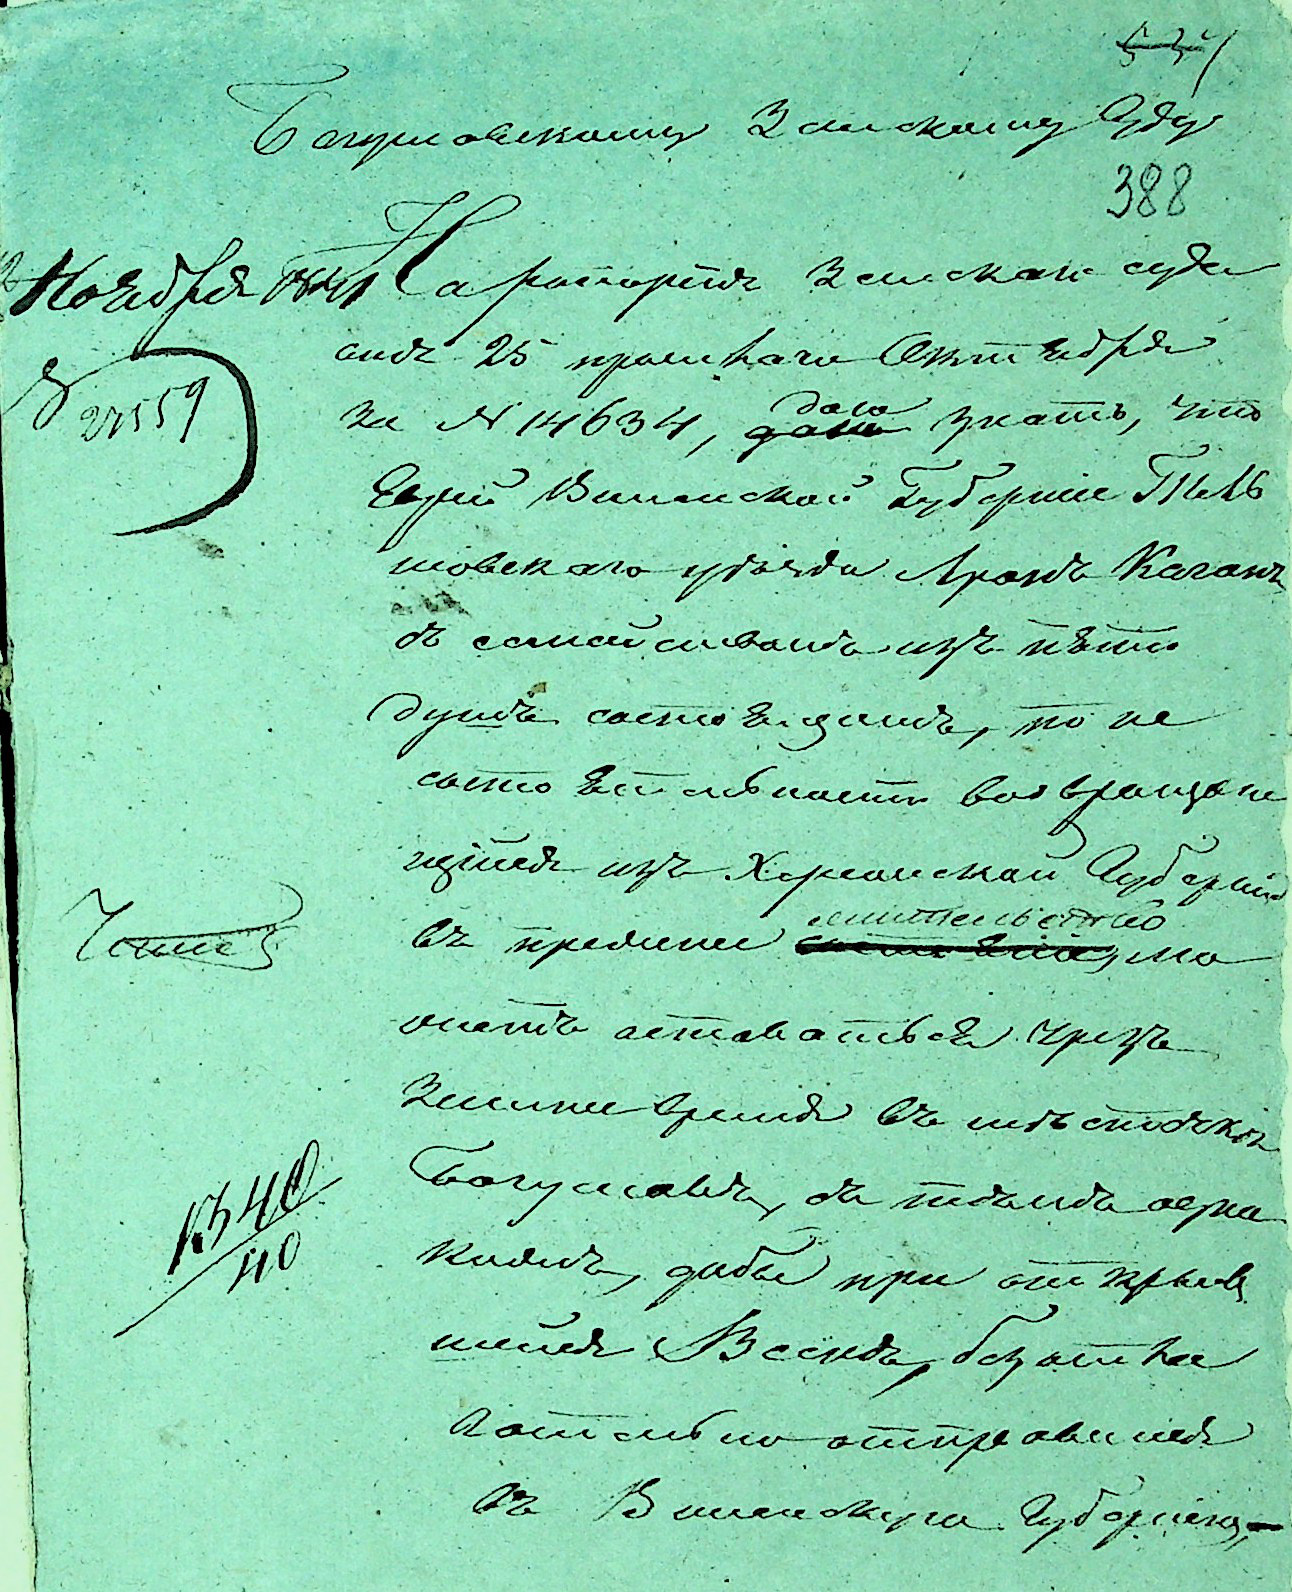 Богуславскому Земскому Суду
388
Ноября 1841
На рапортъ Земскаго суда
27559
отъ 25 прошлаго Октября
за № 14634, дато знать, что
Еврей Виленской Губерніи Тель
шовскаго уѣзда Аронъ Каганъ
съ семействомъ изъ пяти
душъ состоящимъ, по не
состоятельности возвращаю
щійся изъ Херсонской Губерніи
въ прежнее жительство, мо
жетъ оставаться чрезъ
Зимнее время въ мѣстечкѣ
Богуславѣ, съ тѣмъ одна
кожъ, дабы при открыв
1340/40
шейся Веснѣ, безотла
гательно отправился
въ Виленскую Губернію,